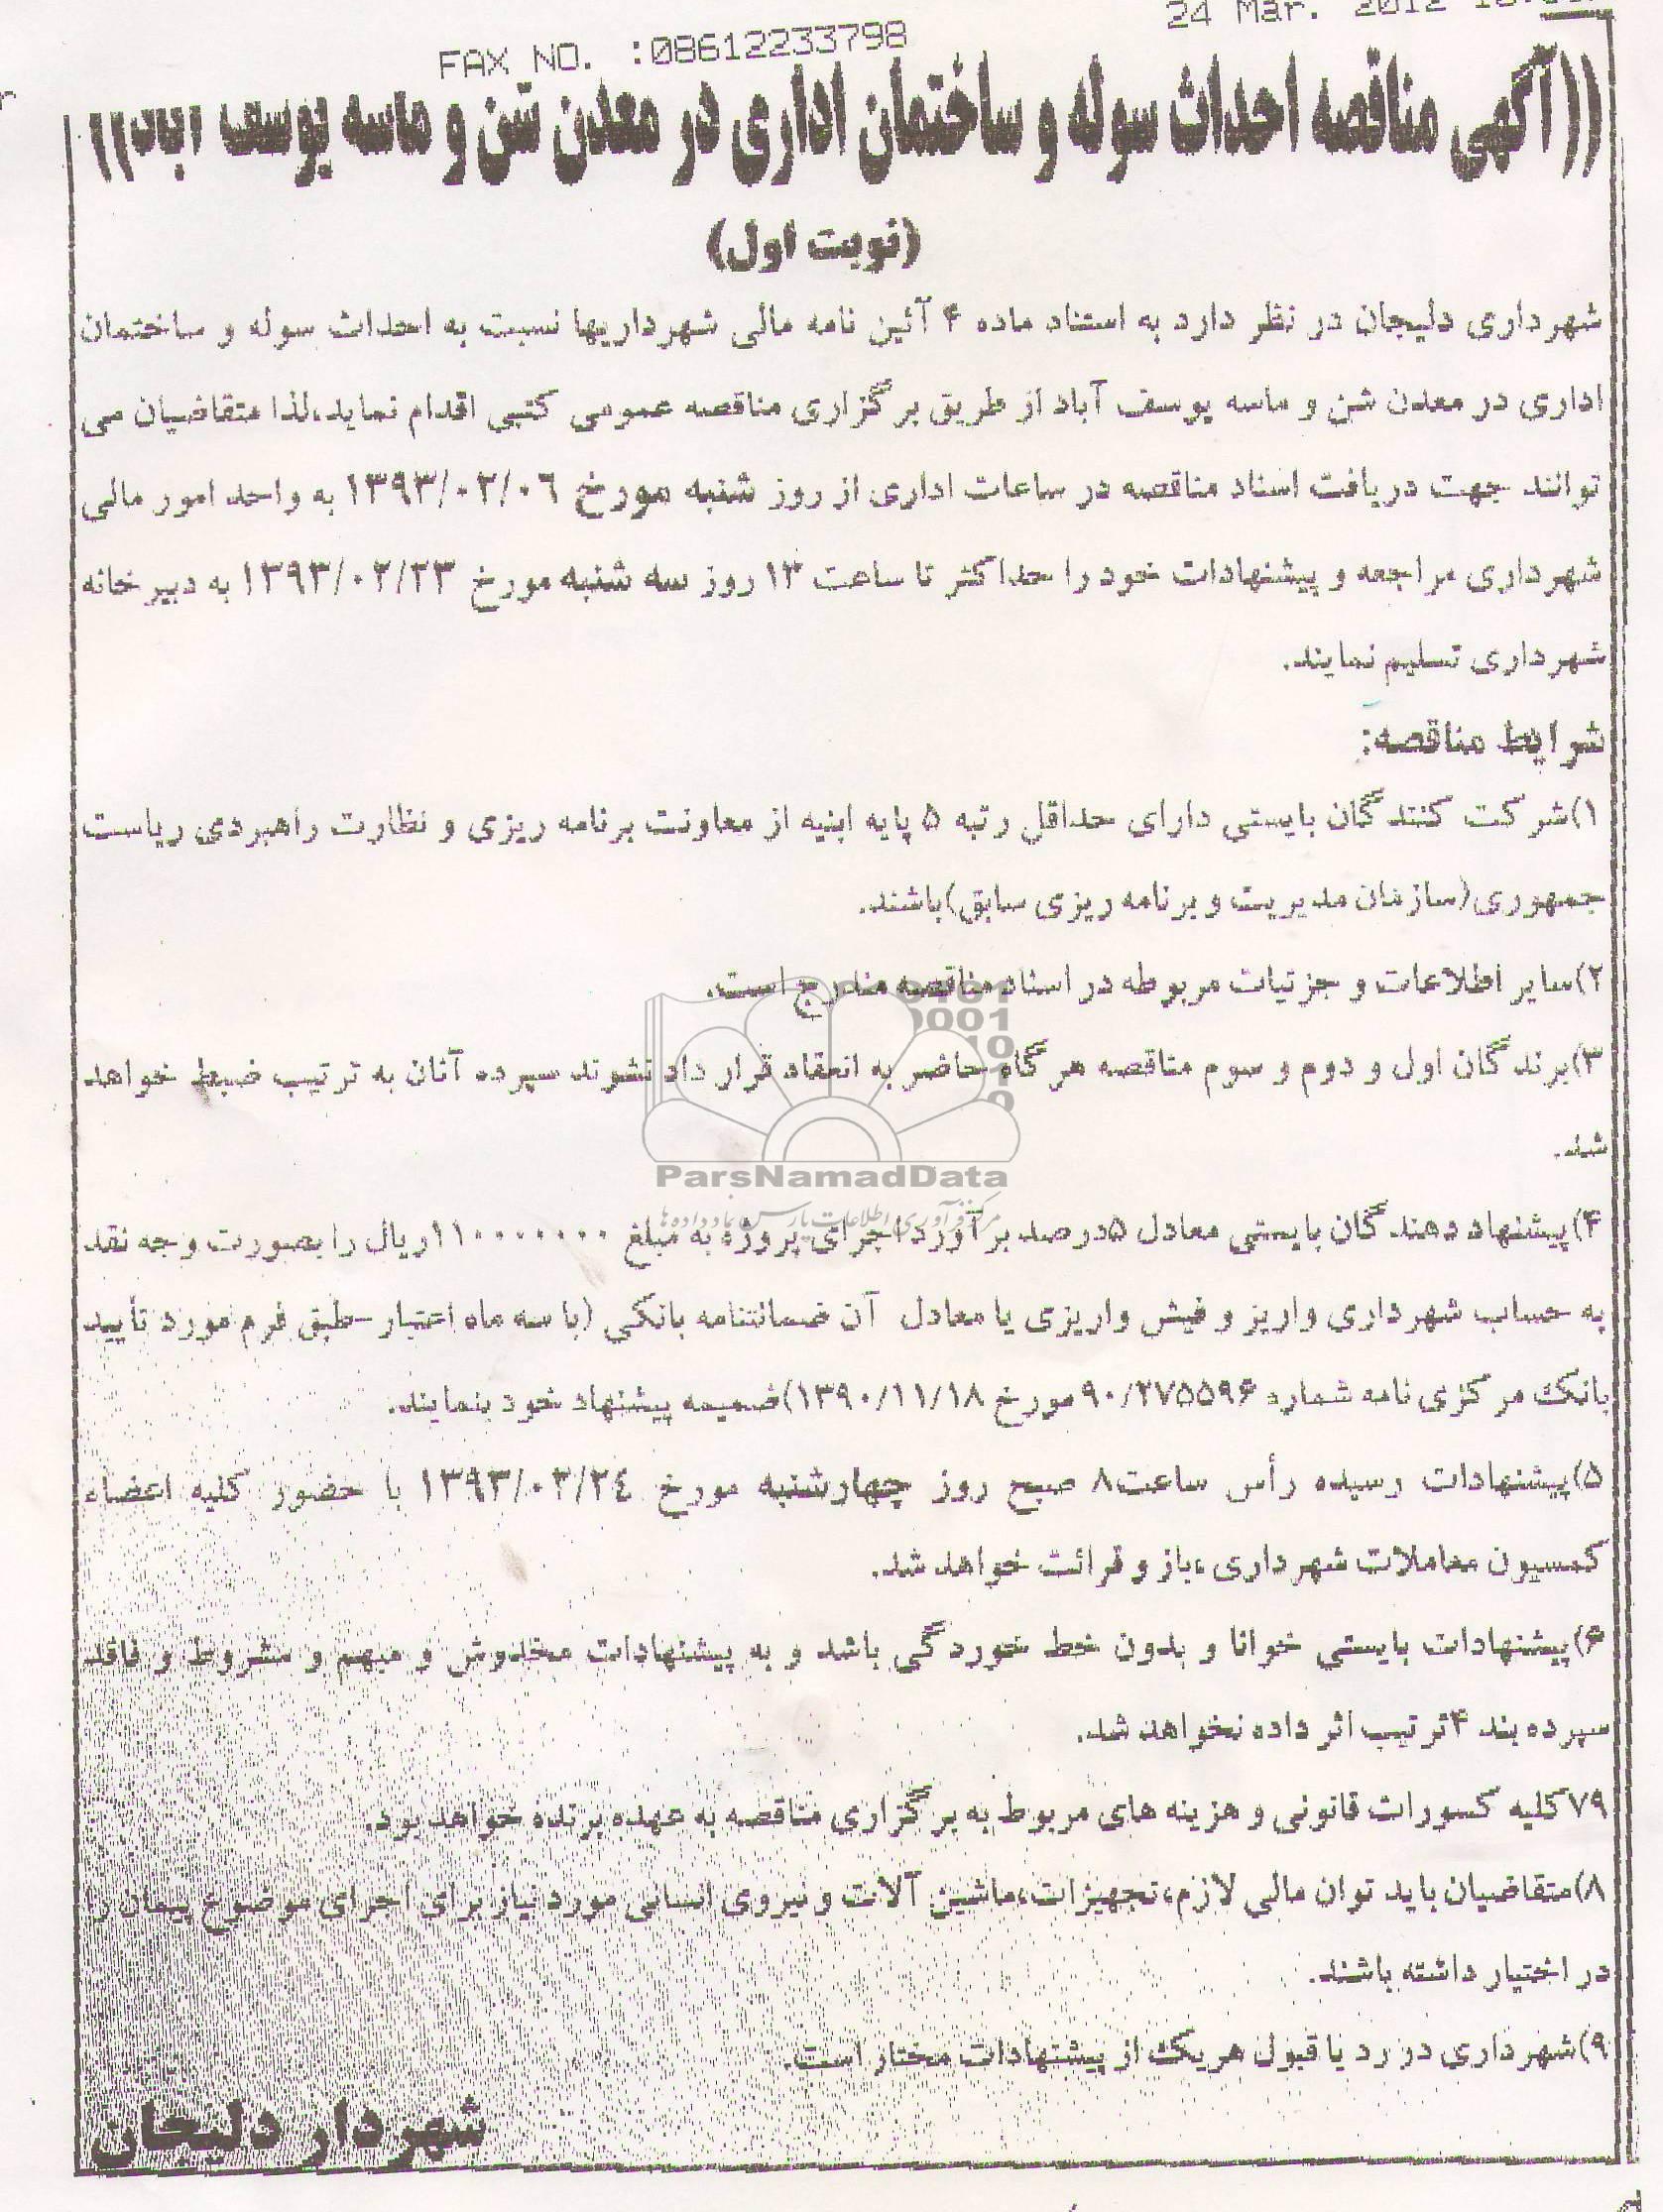 24 Mar. 2012
FAX NO. :08612233798
((آگهی مناقصه احداث سوله و ساختمان اداری در معدن شن و ماسه یوسف آباد))
(نوبت اول)
شهرداری دلیجان در نظر دارد به استناد ماده ۴ آئین نامه مالی شهرداریها نسبت به احداث سوله و ساختمان
اداری در معدن شن و ماسه یوسف آباد از طریق برگزاری مناقصه عمومی کتبی اقدام نماید،لذا متقاضیان می
توانند جهت دریافت اسناد مناقصه در ساعات اداری از روز شنبه مورخ ۱۳۹۳/۰۲/۰۶ به واحد امور مالی
شهرداری مراجعه و پیشنهادات خود را حداکثر تا ساعت ۱۳ روز سه شنبه مورخ ۱۳۹۳/۰۲/۲۳ به دبیرخانه
شهرداری تسلیم نمایند.
شرایط مناقصه:
۱)شرکت کنندگان بایستی دارای حداقل رتبه ۵ پایه ابنیه از معاونت برنامه ریزی و نظارت راهبردی ریاست
جمهوری(سازمان مدیریت و برنامه ریزی سابق)باشند.
۲)سایر اطلاعات و جزئیات مربوطه در اسناد مناقصه مندرج است.
۳)برندگان اول و دوم و سوم مناقصه هرگاه حاضر به انعقاد قرار داد نشوند سپرده آنان به ترتیب ضبط خواهد
شد.
ParsNamadData
مرکز فرآوری اطلاعات پارس نماد داده ها
۴)پیشنهاد دهندگان بایستی معادل ۵درصد برآورد اجرای پروژه به مبلغ ۱۱۰۰۰۰۰۰۰ریال را بصورت وجه نقد
به حساب شهرداری واریز و فیش واریزی یا معادل آن ضمانتنامه بانکی (با سه ماه اعتبار-طبق فرم مورد تأیید
بانک مرکزی نامه شماره ۹۰/۲۷۵۵۹۶مورخ ۱۳۹۰/۱۱/۱۸)ضمیمه پیشنهاد خود بنمایند.
۵)پیشنهادات رسیده رأس ساعت۸ صبح روز چهارشنبه مورخ ۱۳۹۳/۰۲/۲٤ با حضور کلیه اعضاء
کمسیون معاملات شهرداری ،باز و قرائت خواهد شد.
۶)پیشنهادات بایستی خوانا و بدون خط خوردگی باشد و به پیشنهادات مخدوش و مبهم و مشروط و فاقد
سپرده بند ۴ترتیب اثر داده نخواهد شد.
۷۹کلیه کسورات قانونی و هزینه های مربوط به برگزاری مناقصه به عهده برنده خواهد بود.
۸)متقاضیان باید توان مالی لازم،تجهیزات،ماشین آلات و نیروی انسانی مورد نیاز برای اجرای موضوع پیمان را
در اختیار داشته باشند.
۹)شهرداری در رد یا قبول هریک از پیشنهادات مختار است.
شهردار دلیجان